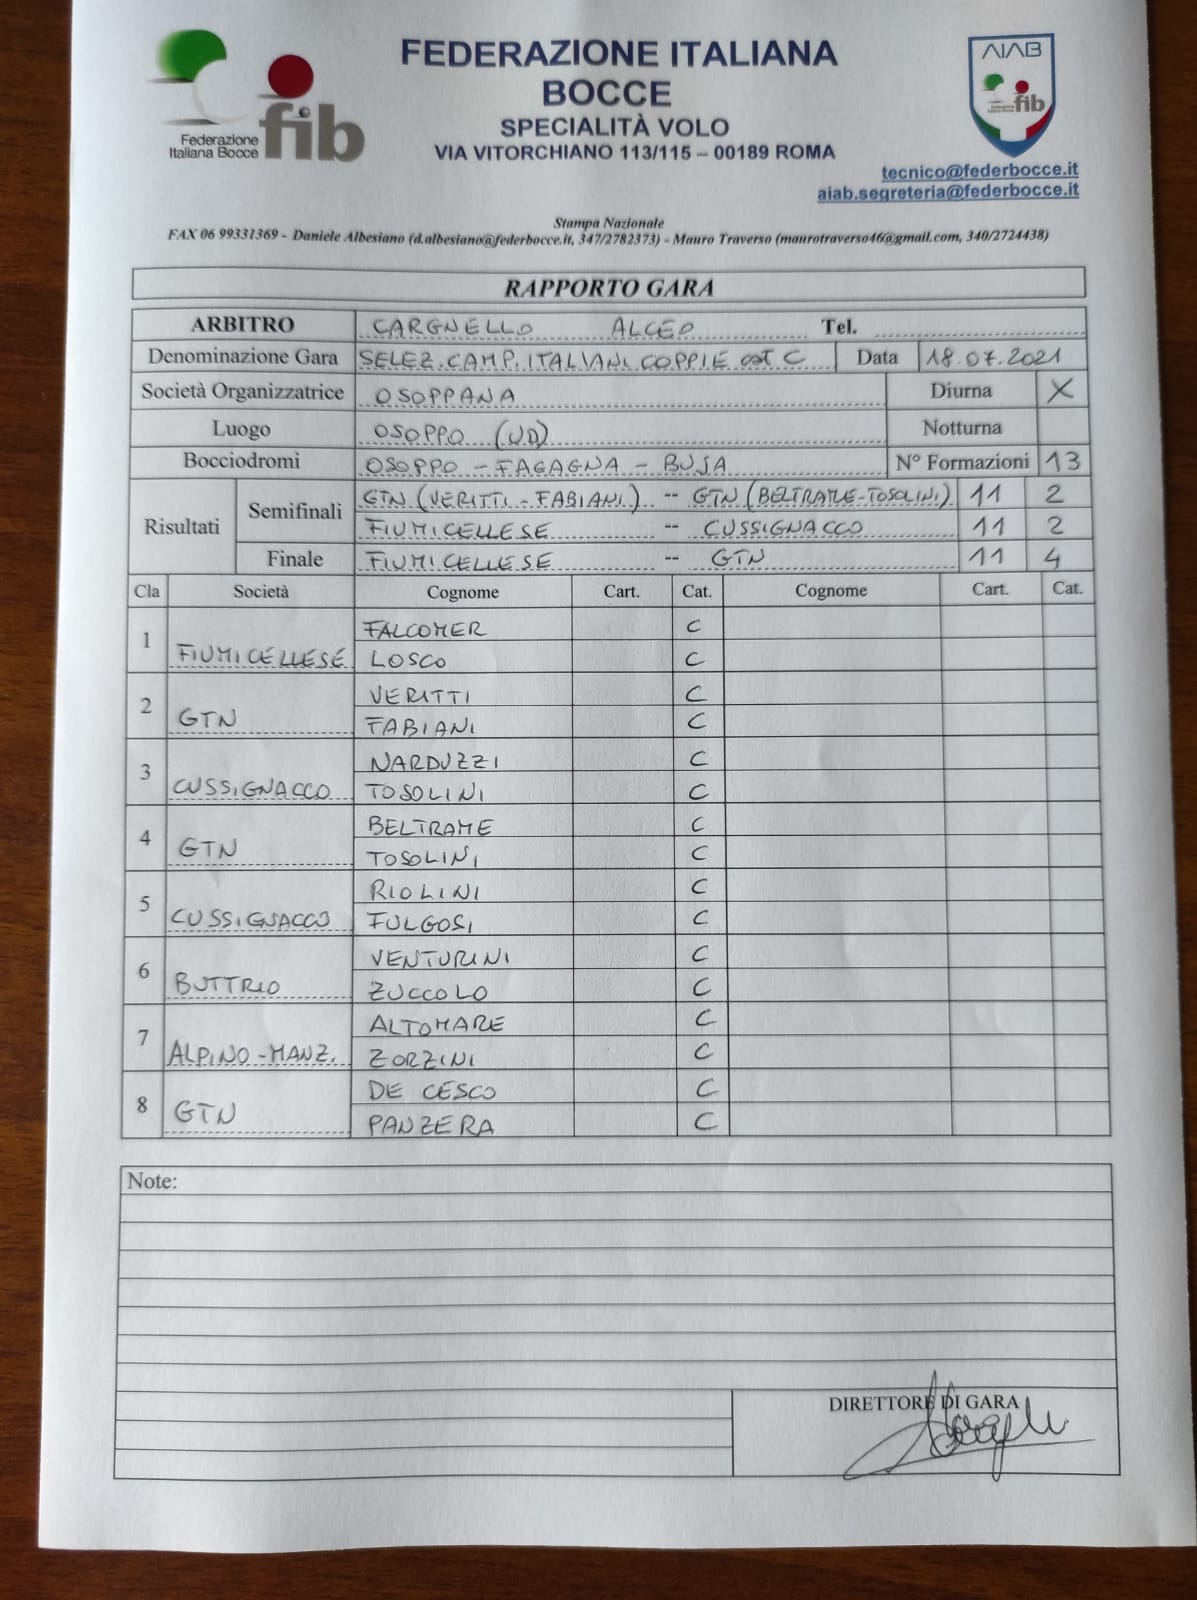 FEDERAZIONE ITALIANA
BOCCE
SPECIALITÀ VOLO
VIA VITORCHIANO 113/115 – 00189 ROMA
Federazione
Italiana Bocce
fib
AIAB
fib
tecnico@federbocce.it
aiab.segreteria@federbocce.it
Stampa Nazionale
FAX 06 99331369 - Daniele Albesiano (d.albesiano@federbocce.it, 347/2782373) - Mauro Traverso (maurotraverso46@gmail.com, 340/2724438)
RAPPORTO GARA
ARBITRO CARGNELLO ALCEO Tel.
Denominazione Gara SELEZ. CAMP. ITALIANI COPPIE cat C Data 18.07.2021
Società Organizzatrice OSOPPANA Diurna X
Luogo OSOPPO (UD) Notturna
Bocciodromi OSOPPO - FAGAGNA - BUJA N° Formazioni 13
Risultati Semifinali GTN (VERITTI - FABIANI) -- GTN (BELTRAME-TOSOLINI) 11 2
FIUMICELLESE -- CUSSIGNACCO 11 2
Finale FIUMICELLESE -- GTN 11 4
Cla Società Cognome Cart. Cat. Cognome Cart. Cat.
1 FIUMICELLESE FALCOMER C
LOSCO C
2 GTN VERITTI C
FABIANI C
3 CUSSIGNACCO NARDUZZI C
TOSOLINI C
4 GTN BELTRAME C
TOSOLINI C
5 CUSSIGNACCO RIOLINI C
FULGOSI C
6 BUTTRIO VENTURINI C
ZUCCOLO C
7 ALPINO-MANZ. ALTOMARE C
ZORZINI C
8 GTN DE CESCO C
PANZERA C
Note:
DIRETTORE DI GARA